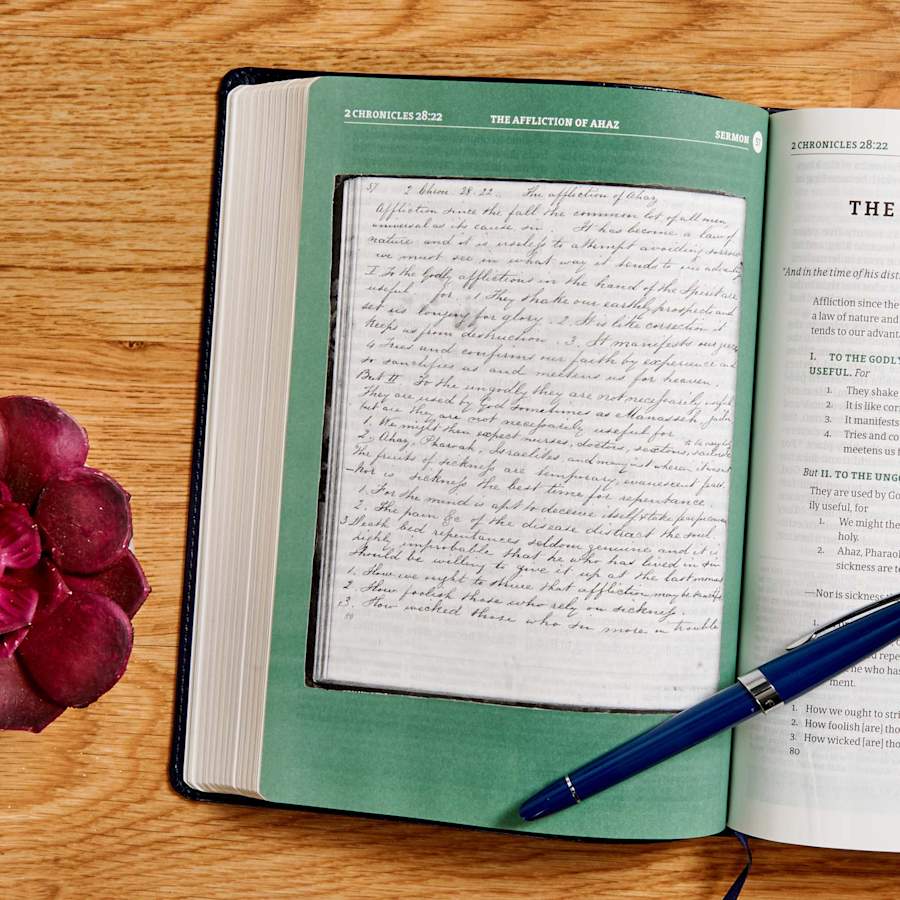 2 CHRONICLES 28:22
THE AFFLICTION OF AHAZ
SERMON 57
57 2 Chron. 28.22. The affliction of Ahaz
Affliction since the fall the common lot of all men,
universal as its cause sin. It has become a law of
nature and it is useless to attempt avoiding sorrow
we must see in what way it tends to our advantage
I. To the Godly afflictions in the hand of the Spirit are
useful for. 1 They shake our earthly prospects and
set us longing for glory. 2. It is like correction it
keeps us from destruction. 3. It manifests our graces
4 Tries and confirms our faith by experience and
so sanctifies us and meetens us for heaven.
But II To the ungodly they are not necessarily useful
They are used by God sometimes as Manasseh, jailor
but are they are not necessarily useful for
1. We might then expect nurses, doctors, sextons, sailors to be
2. Ahaz, Pharoah, Israelites, and
The fruits of sickness are temporary, evanescent
—Nor is sickness the best time for repentance.
1. For the mind is apt to deceive itself & take
2. The pain &c of the disease distract the soul.
3 Death bed repentances seldom genuine and it is
highly improbable that he who has lived in sin
should be willing to give it up at the last moment
1. How we ought to strive that affliction may be
2 How foolish those who rely on sickness.
3. How wicked those who sin more in trouble
80
2 CHRONICLES 28:22
THE
"And in the time of his dist
Affliction since the
a law of nature and
tends to our advant
I. TO THE GODLY
USEFUL. For
1. They shake
2. It is like cor
3. It manifests
4. Tries and co
meetens us f
But II. TO THE UNGO
They are used by Go
ily useful, for
1. We might the
holy.
2. Ahaz, Pharaoh
sickness are te
—Nor is sickness
1.
d repe
ne who has
ment.
1. How we ought to stri
2. How foolish [are] tho
3. How wicked [are] tho
80